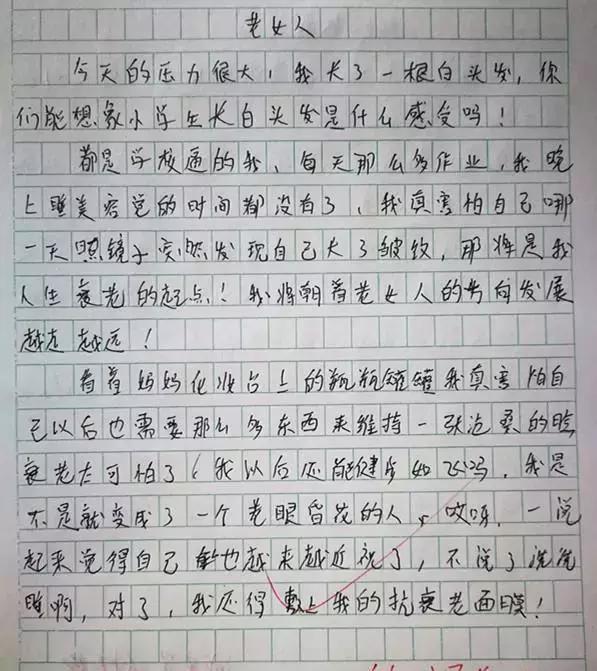 老女人
今天的压力很大，我长了一根白头发，你
们能想象小学生长白头发是什么感受吗！
都是学校逼的我，每天那么多作业，我晚
上睡美容觉的时间都没有了，我真害怕自己哪
一天照镜子突然发现自己长了皱纹，那将是我
人生衰老的起点！我将朝着老女人的方向发展
越走越远！
看着妈妈化妆台上的瓶瓶罐罐我真害怕自
己以后也需要那么多东西来维持一张沧桑的脸
衰老太可怕了（我以后还能健步如飞吗，我是
不是就变成了一个老眼昏花的人，哎呀，一说
起来觉得自己也越来越近视了，不说了洗洗
睡啊，对了，我还得敷上我的抗衰老面膜！